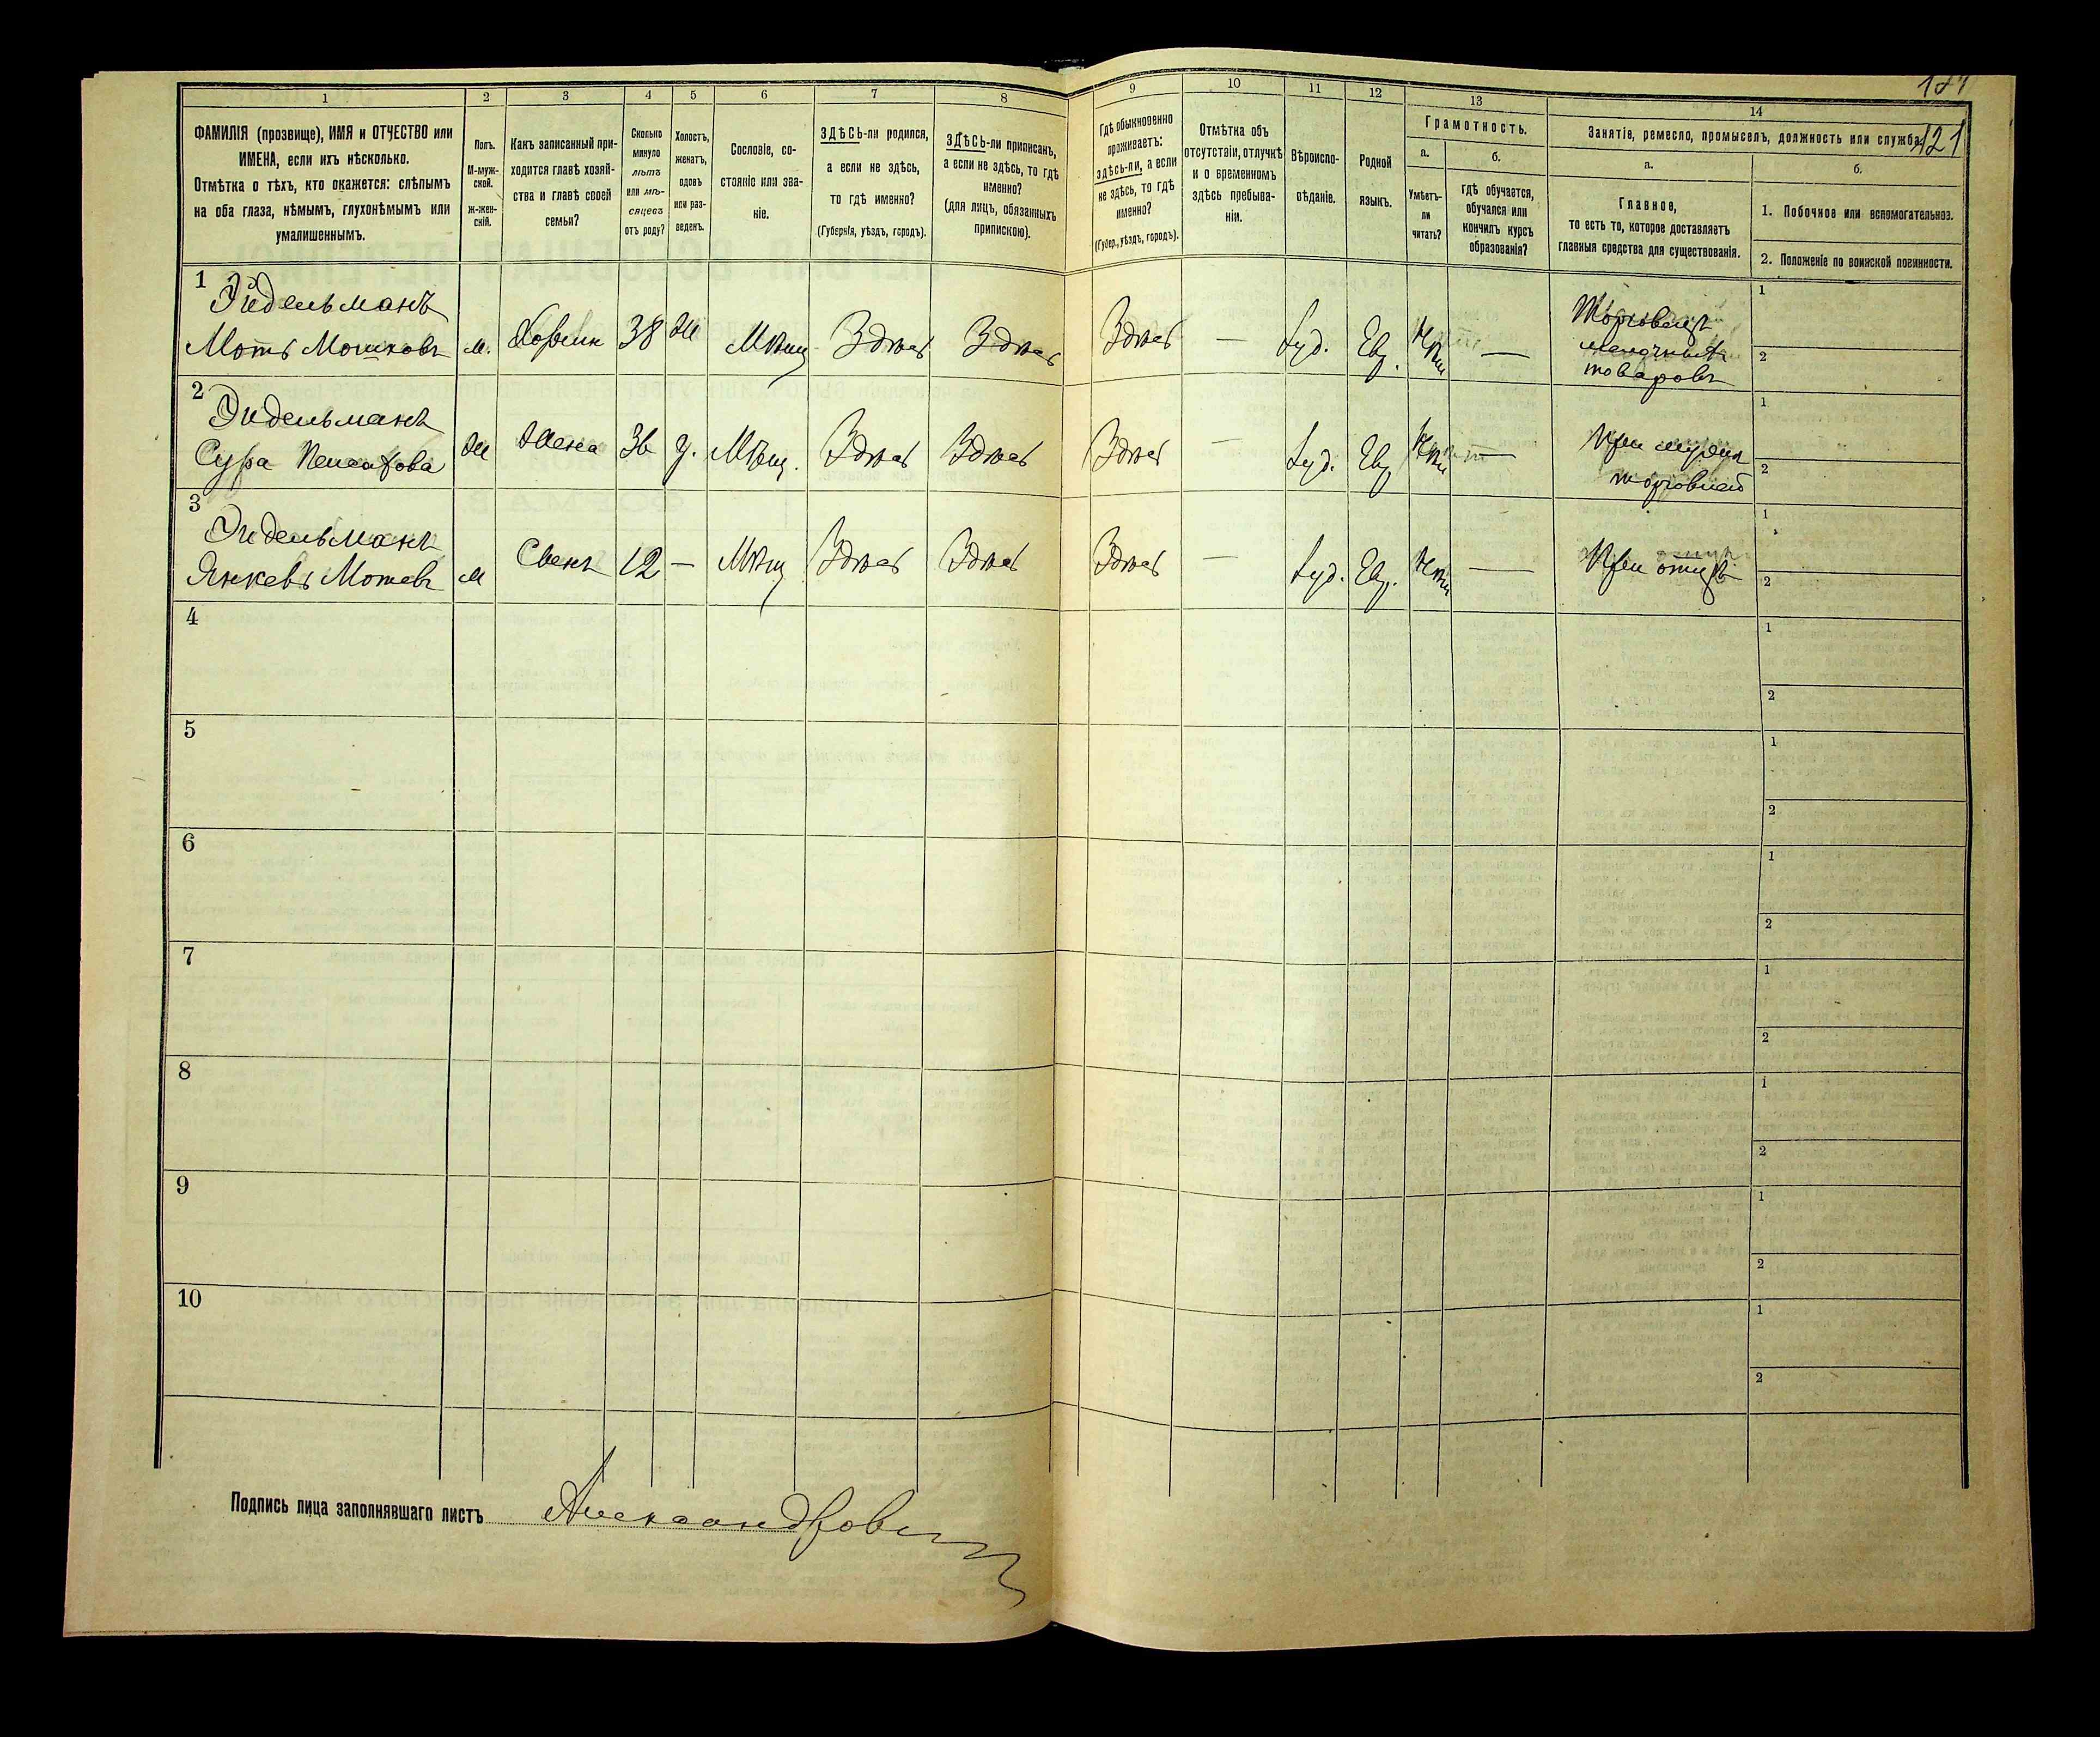 187
121
1 2 3 4 5 6 7 8 9 10 11 12 13 14
ФАМИЛІЯ (прозвище), ИМЯ и ОТЧЕСТВО или
ИМЕНА, если ихъ нѣсколько.
Отмѣтка о тѣхъ, кто окажется: слѣпымъ
на оба глаза, нѣмымъ, глухонѣмымъ или
умалишеннымъ.
Полъ.
М-муж-
ской.
ж-жен-
скій.
Какъ записанный при-
ходится главѣ хозяй-
ства и главѣ своей
семьи?
Сколько
минуло
лѣтъ
или мѣ-
сяцевъ
отъ роду?
Холостъ,
женатъ,
вдовъ
или раз-
веденъ.
Сословіе, со-
стояніе или зва-
ніе.
ЗДѢСЬ-ли родился,
а если не здѣсь,
то гдѣ именно?
(Губернія, уѣздъ, городъ).
ЗДѢСЬ-ли приписанъ,
а если не здѣсь, то гдѣ
именно?
(для лицъ, обязанныхъ
припискою).
Гдѣ обыкновенно
проживаетъ:
здѣсь-ли, а если
не здѣсь, то гдѣ
именно?
(Губер., уѣздъ, городъ).
Отмѣтка объ
отсутствіи, отлучкѣ
и о временномъ
здѣсь пребыва-
ніи.
Вѣроиспо-
вѣданіе.
Родной
языкъ.
Грамотность.
а.
Умѣетъ-
ли
читать?
б.
гдѣ обучается,
обучался или
кончилъ курсъ
образованія?
Занятіе, ремесло, промыселъ, должность или служба.
а.
Главное,
то есть то, которое доставляетъ
главныя средства для существованія.
б.
1. Побочное или вспомогательное.
2. Положеніе по воинской повинности.
1 Эйдельманъ
Моть Мошковъ м. Хозяинъ 38 ж Мѣщ Здѣсь Здѣсь Здѣсь — Іуд. Евр. Нѣтъ — Торговецъ
мелочныхъ
товаровъ
1
2
2 Эйдельманъ
Сура ж Жена 36 з. Мѣщ. Здѣсь Здѣсь Здѣсь — Іуд. Евр. Нѣтъ — При мужѣ
торговлей
1
2
3 Эйдельманъ
Янкель Мотевъ м Сынъ 12 — Мѣщ Здѣсь Здѣсь Здѣсь — Іуд. Евр. Нѣтъ — При отцѣ
1
2
4
1
2
5
1
2
6
1
2
7
1
2
8
1
2
9
1
2
10
1
2
Подпись лица заполнявшаго листъ Александрович